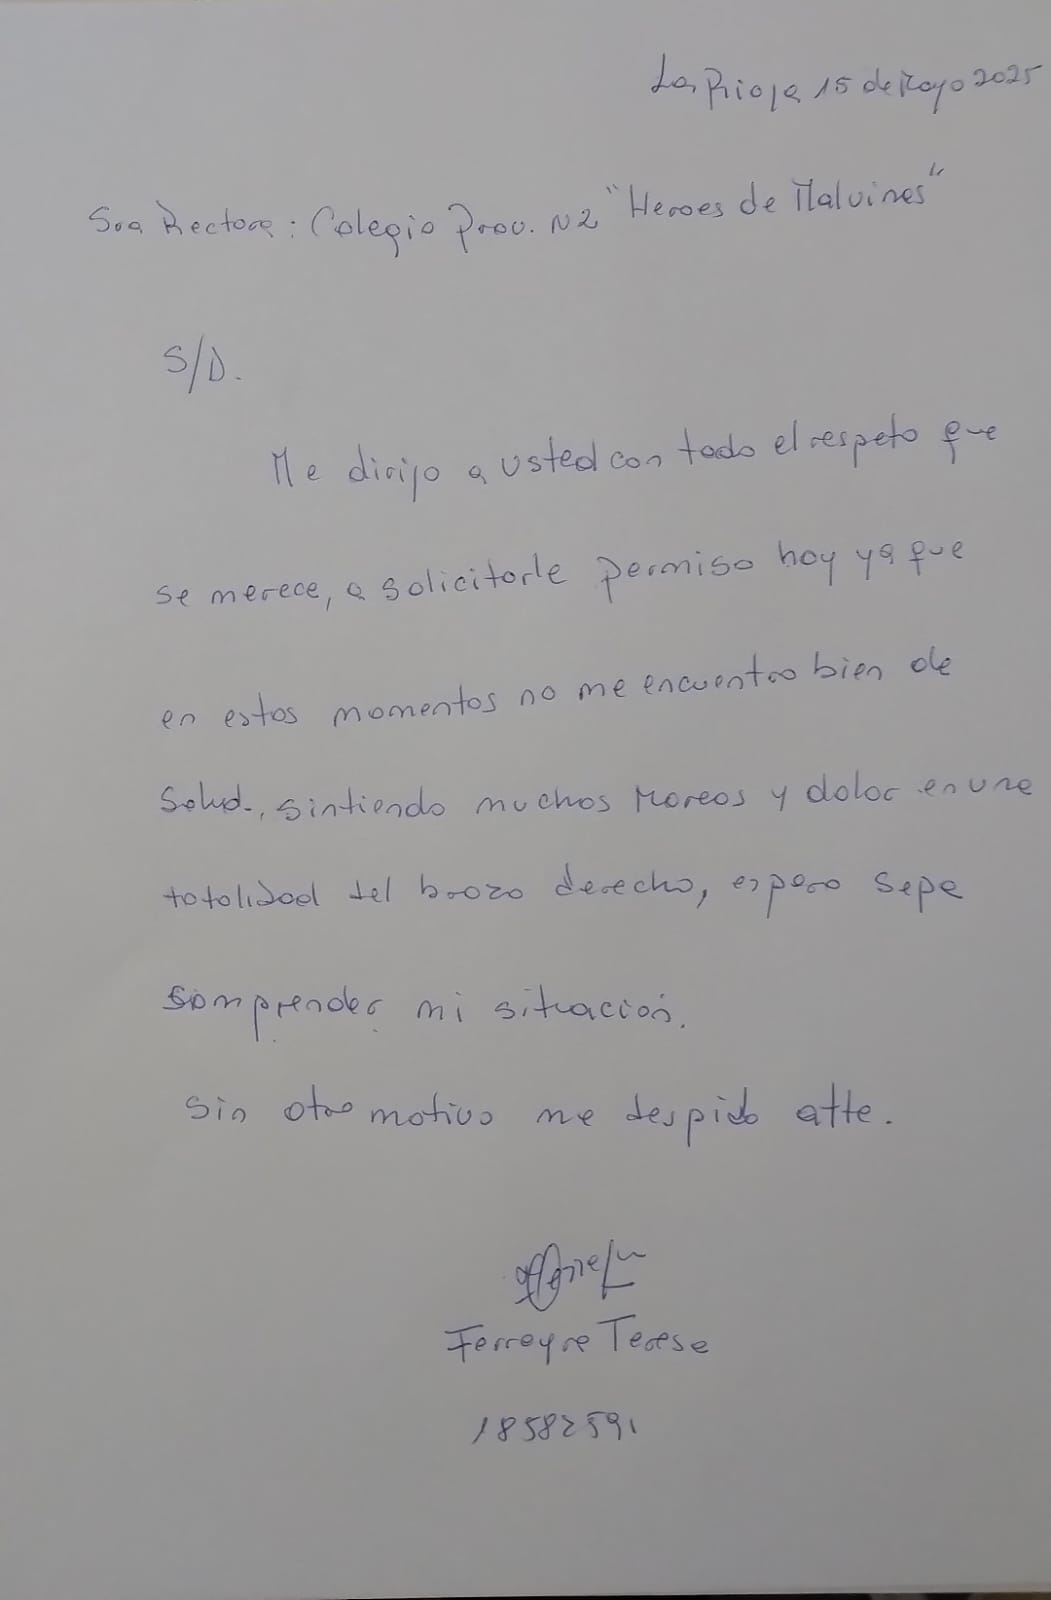 La Rioja 15 de Mayo 2025
Sra Rectora: Colegio Prov. N2 "Heroes de Malvinas"
S/D.
Me dirijo a usted con todo el respeto que
se merece, a solicitarle permiso hoy ya que
en estos momentos no me encuentro bien de
Salud., sintiendo muchos Mareos y dolor en una
totalidad del brazo derecho, espero sepa
comprender mi situación.
Sin otro motivo me despido atte.
Ferreyra Teresa
18582591